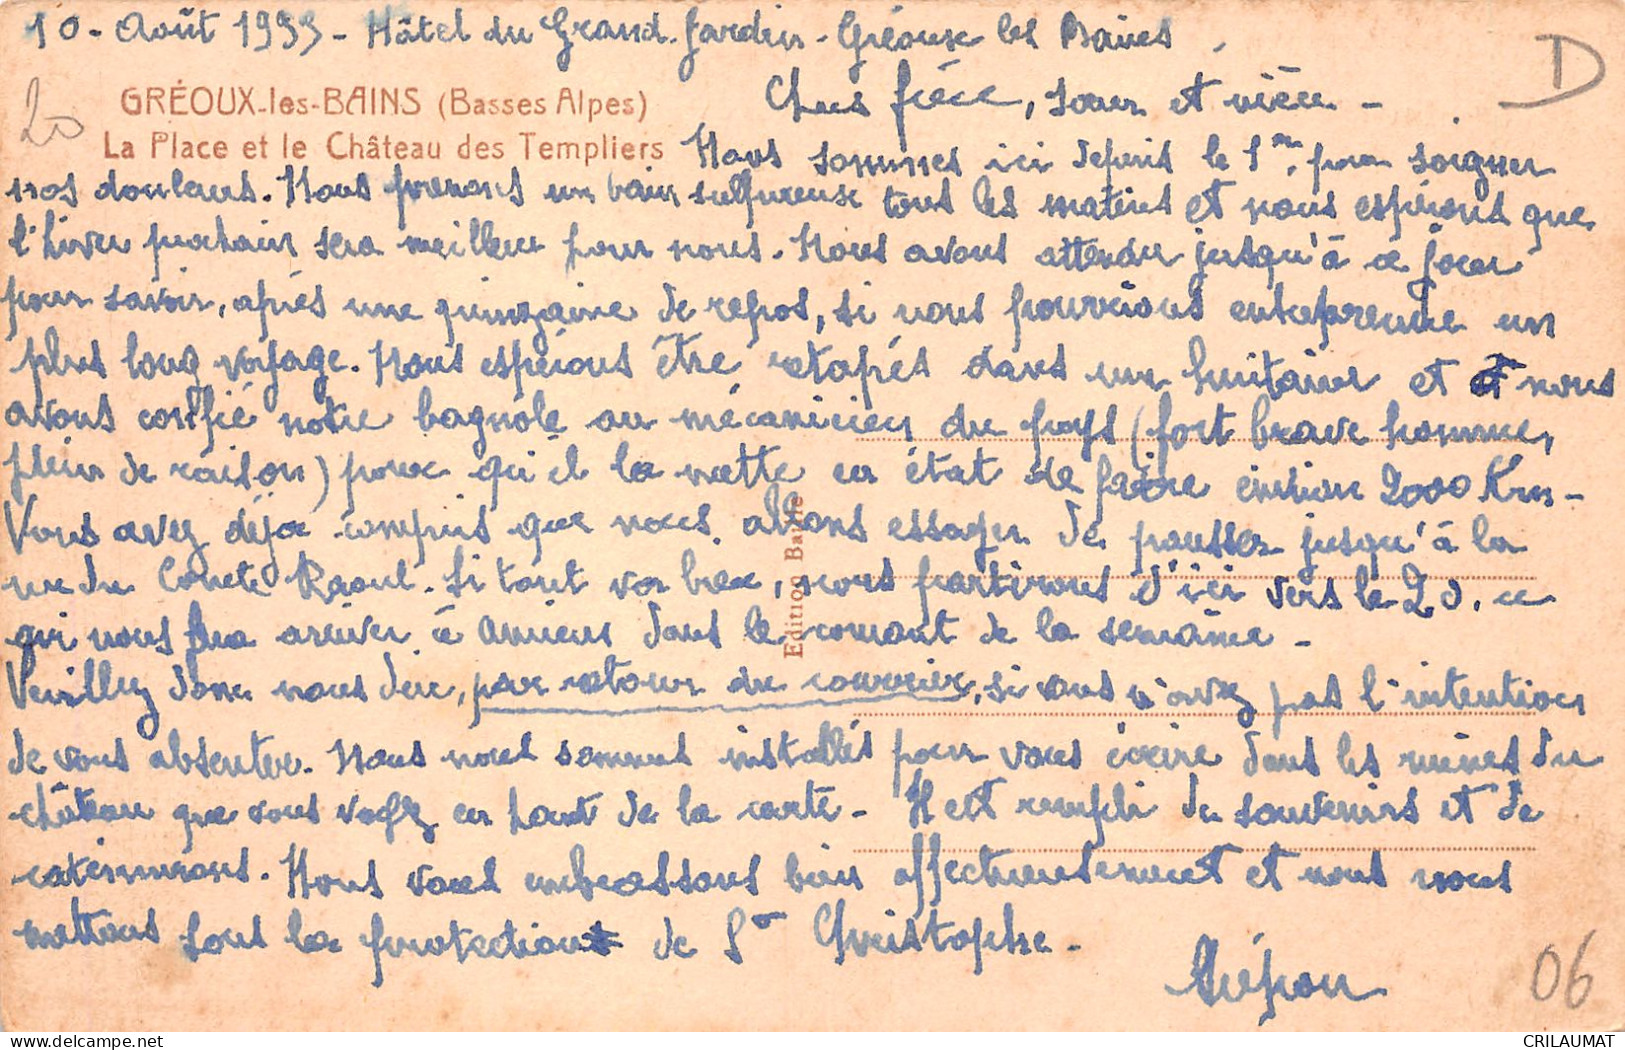 10 - Août 1933 - Hôtel du Grand-Jardin - Gréoux les Bains
D
20
GRÉOUX-les-BAINS (Basses Alpes)
La Place et le Château des Templiers
Chers frère, soeur et nièce -
Nous sommes ici depuis le 1er pour soigner
nos douleurs. Nous prenons un bain sulfureux tous les matins et nous espérons que
l'hiver prochain sera meilleur pour nous. Nous avons attendu jusqu'à ce jour
pour savoir, après une quinzaine de repos, si nous pourrions entreprendre un
plus long voyage. Nous espérons être retapés dans une huitaine et nous
avons confié notre bagnole au mécanicien du pays (fort brave homme,
plein de raison) pour qu'il la mette en état de faire environ 2000 Kms -
Vous avez déjà compris que nous allons essayer de pousser jusqu'à la
rue du Comte Raoul. Si tout va bien, nous partirons d'ici vers le 20, ce
qui nous fera arriver à Amiens dans le courant de la semaine -
Veuillez donc nous dire, par retour du courrier, si vous n'avez pas l'intention
de vous absenter. Nous nous sommes installés pour vous écrire dans les ruines du
château que vous voyez en haut de la carte - Il est rempli de souvenirs et de
Nous vous embrassons bien affectueusement et nous vous
mettons sous la protection de St Christophe -
Edition Baille
06
CRILAUMAT